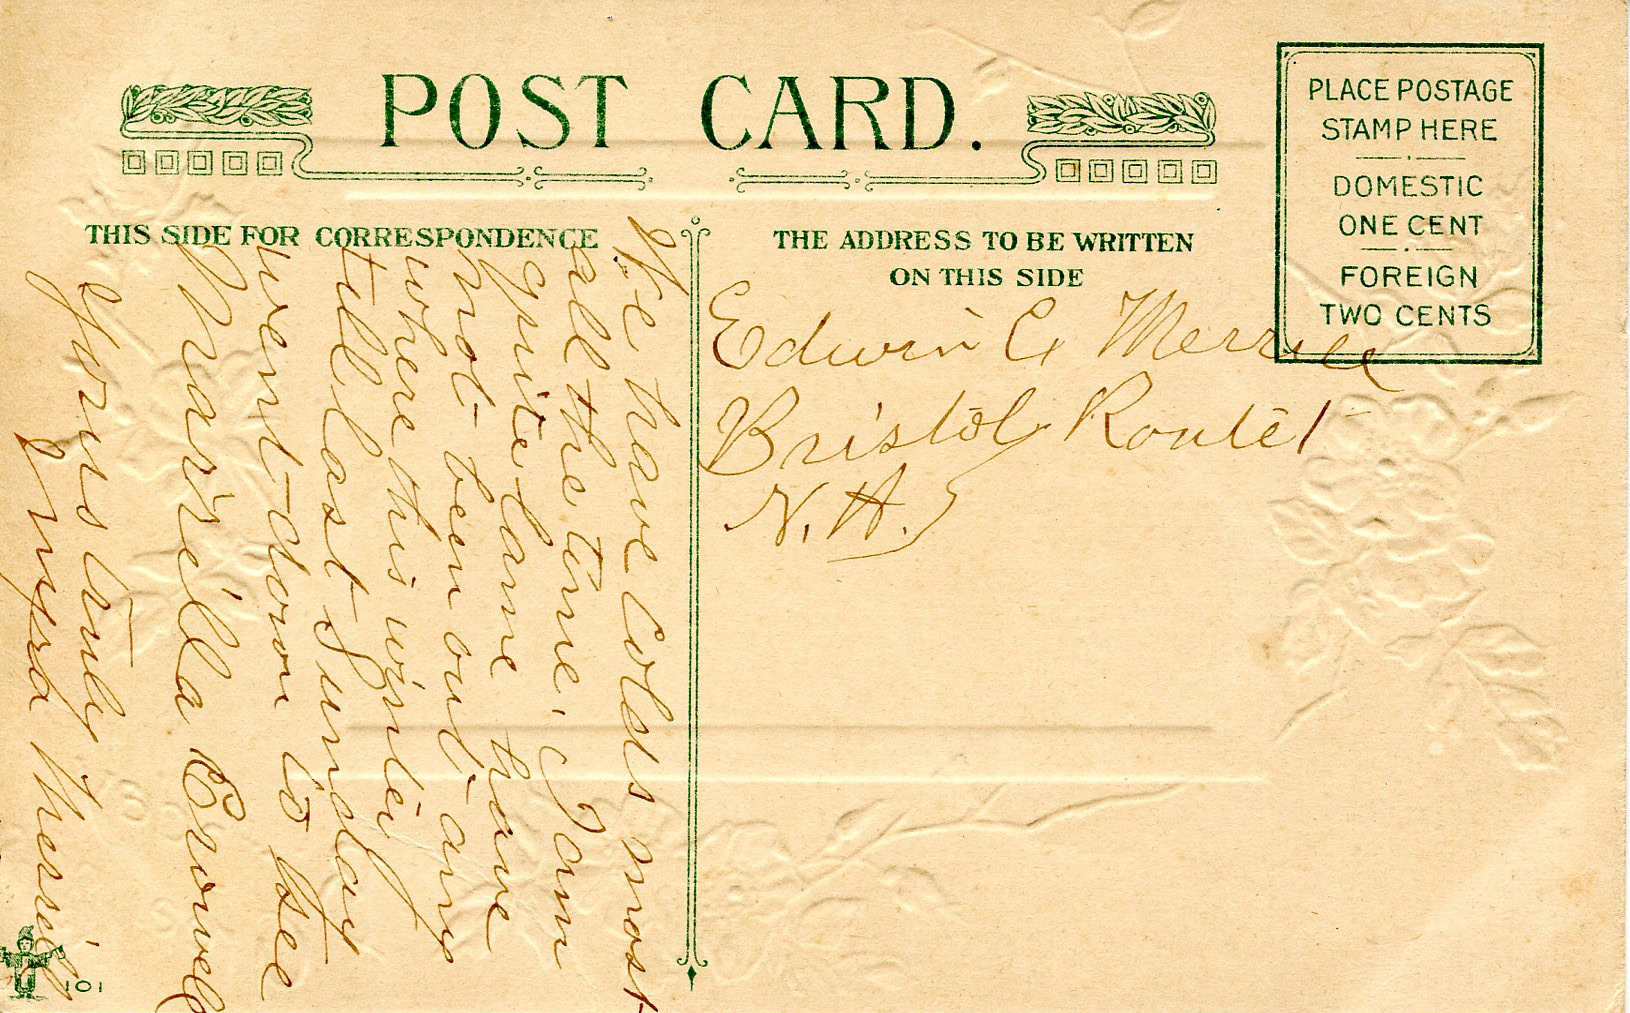 POST CARD.
PLACE POSTAGE
STAMP HERE
DOMESTIC
ONE CENT
FOREIGN
TWO CENTS
THIS SIDE FOR CORRESPONDENCE
THE ADDRESS TO BE WRITTEN
ON THIS SIDE
We have Colds most
all the time. I am
quite lame have
not been out any
where this winter
till last Sunday
went down to see
Marrilla Crowell
Yours truly
Myra Merrill
Edwin C Merrill
Bristol Route 1
N. H.
101